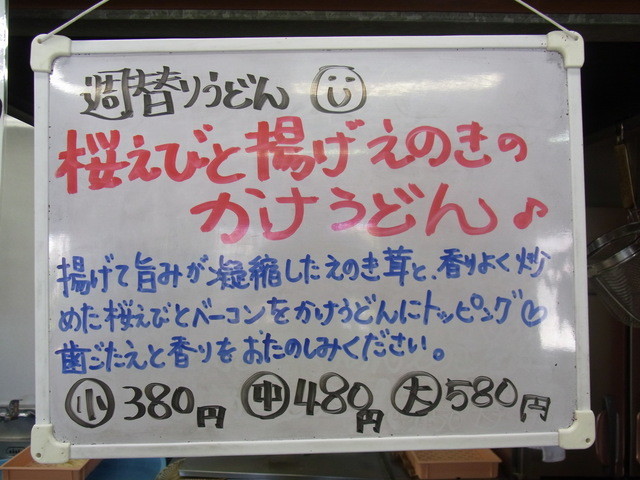 週替りうどん
桜えびと揚げえのきの
かけうどん♪
揚げて旨みが凝縮したえのき茸と、香りよく炒
めた桜えびとバーコンをかけうどんにトッピング♡
歯ごたえと香りをおたのしみください。
小 380円 中 480円 大 580円